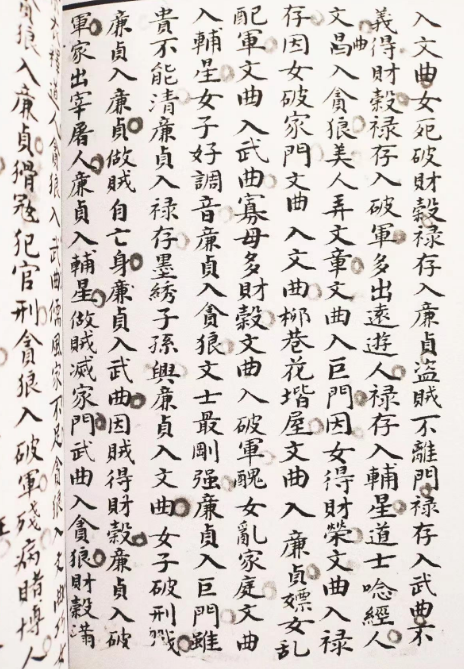 入文曲女死破財穀禄存入廉貞盜賊不離門禄存入武曲不
義得財穀禄存入破軍多出遠遊人禄存入輔星道士唸經人
文曲昌入貪狼美人弄文章文曲入巨門因女得財榮文曲入禄
存因女破家門文曲入文曲柳巷花堦屋文曲入廉貞嫖女乱
配軍文曲入武曲寡母多財穀文曲入破軍醜女亂家庭文曲
入輔星女子好調音廉貞入貪狼文士最剛强廉貞入巨門雖
貴不能清廉貞入禄存墨綉子孫興廉貞入文曲女子破刑戮
廉貞入廉貞做賊自亡身廉貞入武曲因賊得財穀廉貞入破
軍家出宰屠人廉貞入輔星做賊滅家門武曲入貪狼財穀滿
道人貪狼入武曲儒風家不足貪狼入文曲
貪狼入廉貞猾冦犯官刑貪狼入破軍殘病賭博人